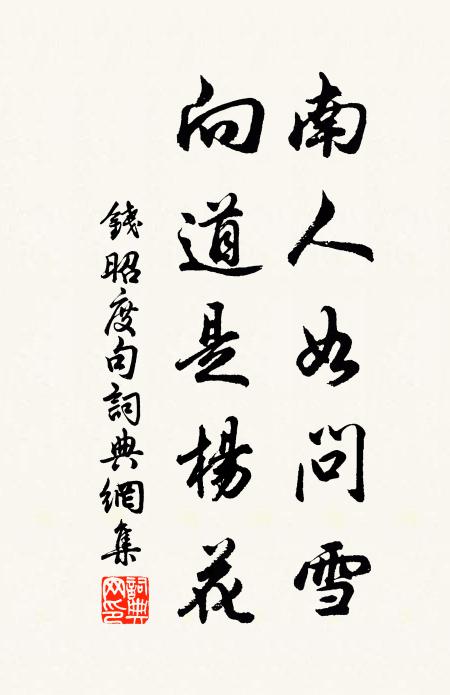 南人如問雪
向道是楊花
錢昭度句詞典網集
詞典网印